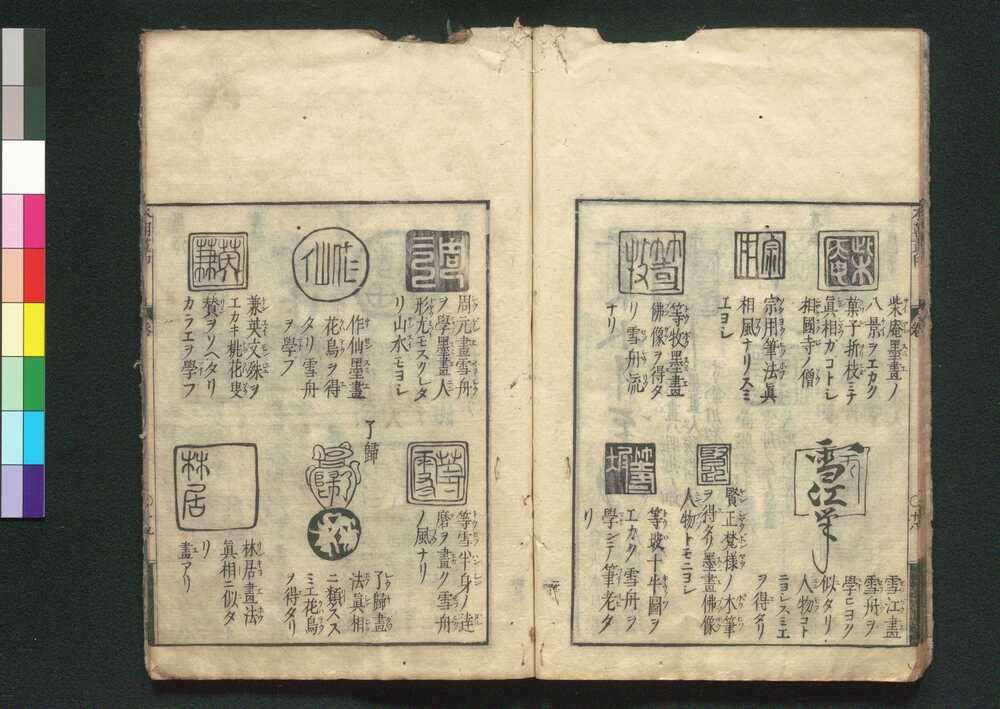 柴庵墨畫ノ
八景ヲエカク
菓子折枝ミテ
眞相カコトレ
相國寺ノ僧
宗用筆法眞
相風ナリスミ
エヨレ
等牧墨畫
佛像ヲ得タ
リ雪舟流
ナリ
雪江畫
雪舟ヲ
學ヒヨク
似タリ
人物コト
ニヨレスミエ
ヲ得タリ
賢正梵様ノ木筆
ヲ得タリ墨畫佛像
人物トモニヨレ
等坡十牛圖ヲ
エカク雪舟ヲ
學シテ筆老タ
リ
周元畫雪舟
ヲ學墨畫人
形尤モスクレタ
リ山水モヨレ
作仙
作仙墨畫
花鳥ヲ得
タリ雪舟
ヲ學フ
兼英
兼英文殊ヲ
エカキ桃花叟
賛ヲリヘタリ
カラエヲ學フ
等雪
等雪半身ノ達
磨ヲ畫ク雪舟
ノ風ナリ
了歸
了歸畫
法眞相
ニ類タスス
ミエ花鳥
ヲ得タリ
林居
林居畫法
眞相ニ似タ
リ
畫アリ